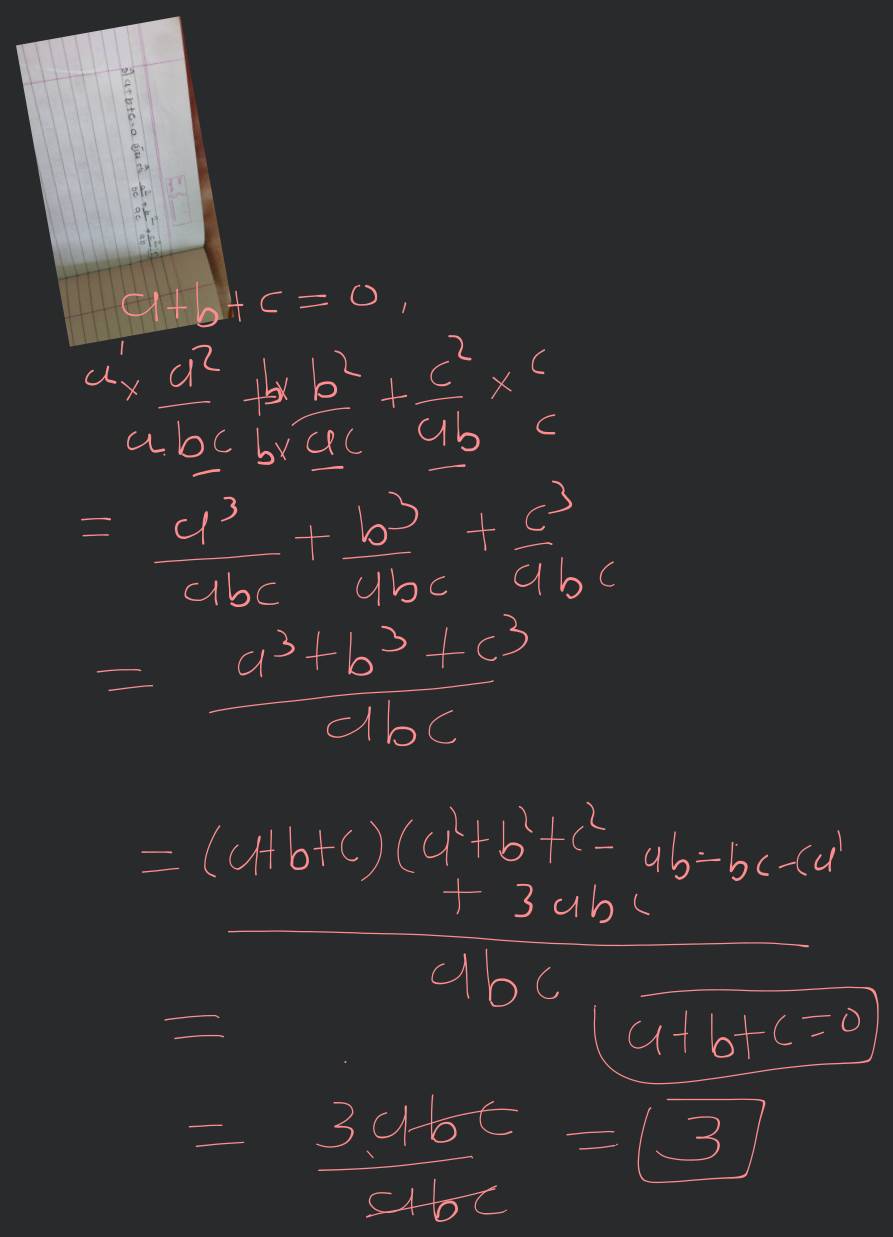 a+b+c=0
a+b+c=0,
a × a² / a.bc + b × b² / b × ac + c² / ab × c / c
= a³ / abc + b³ / abc + c³ / abc
= a³+b³+c³ / abc
= (a+b+c)(a²+b²+c²- ab-bc-ca)
+ 3abc
abc
=
a+b+c=0
= 3abc / abc = 3